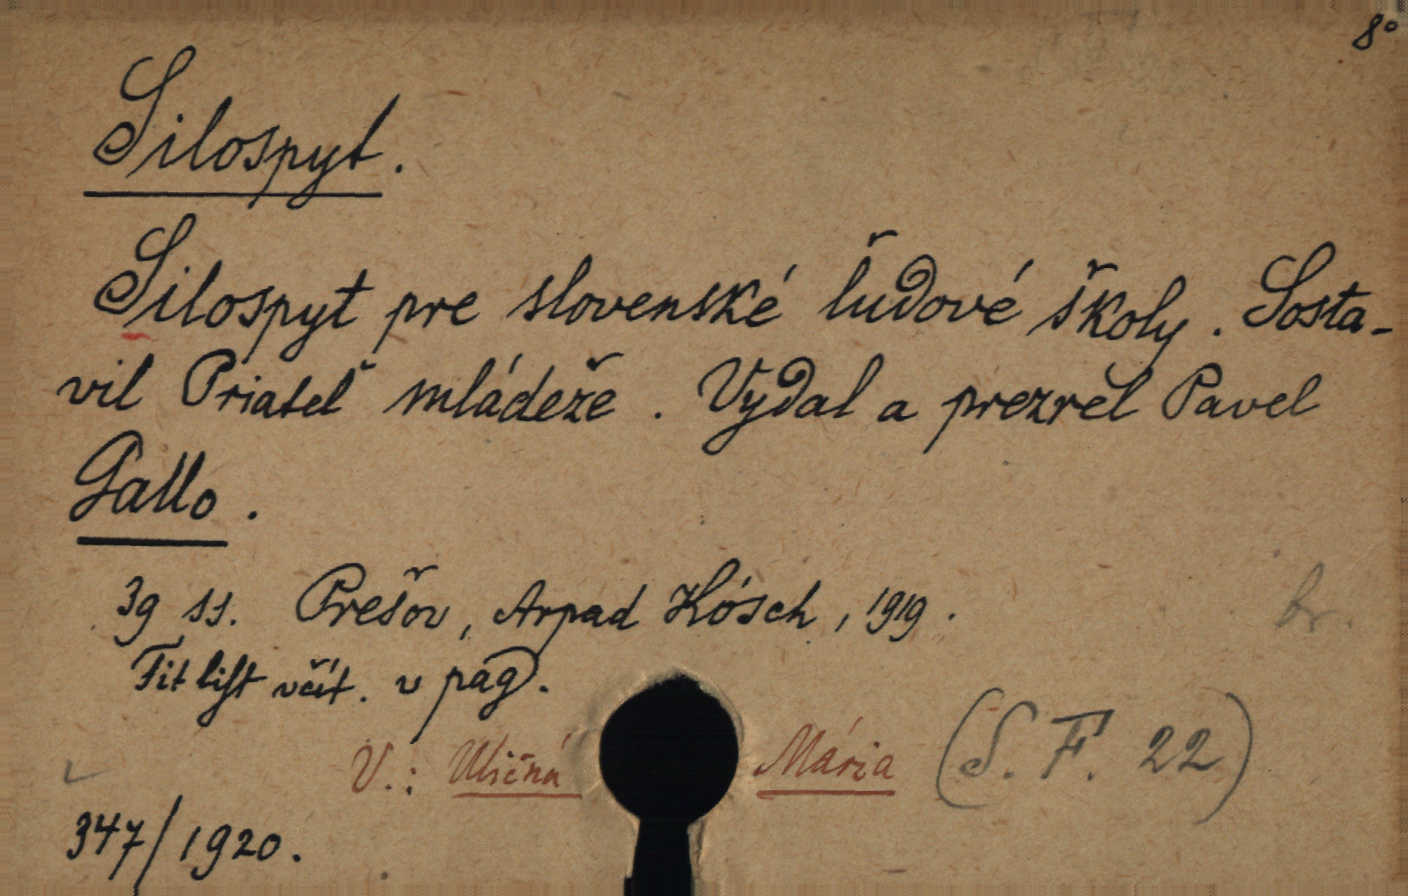 8°
Silospyt.
Silospyt pre slovenské ľudové školy. Sosta-
vil Priateľ mládeže. Vydal a prezrel Pavel
Gallo.
39 ss. Prešov, Arpad Kósch, 1919.
br.
Tit list včít. v pag.
V.: Uličná Mária (S. F. 22)
347/1920.